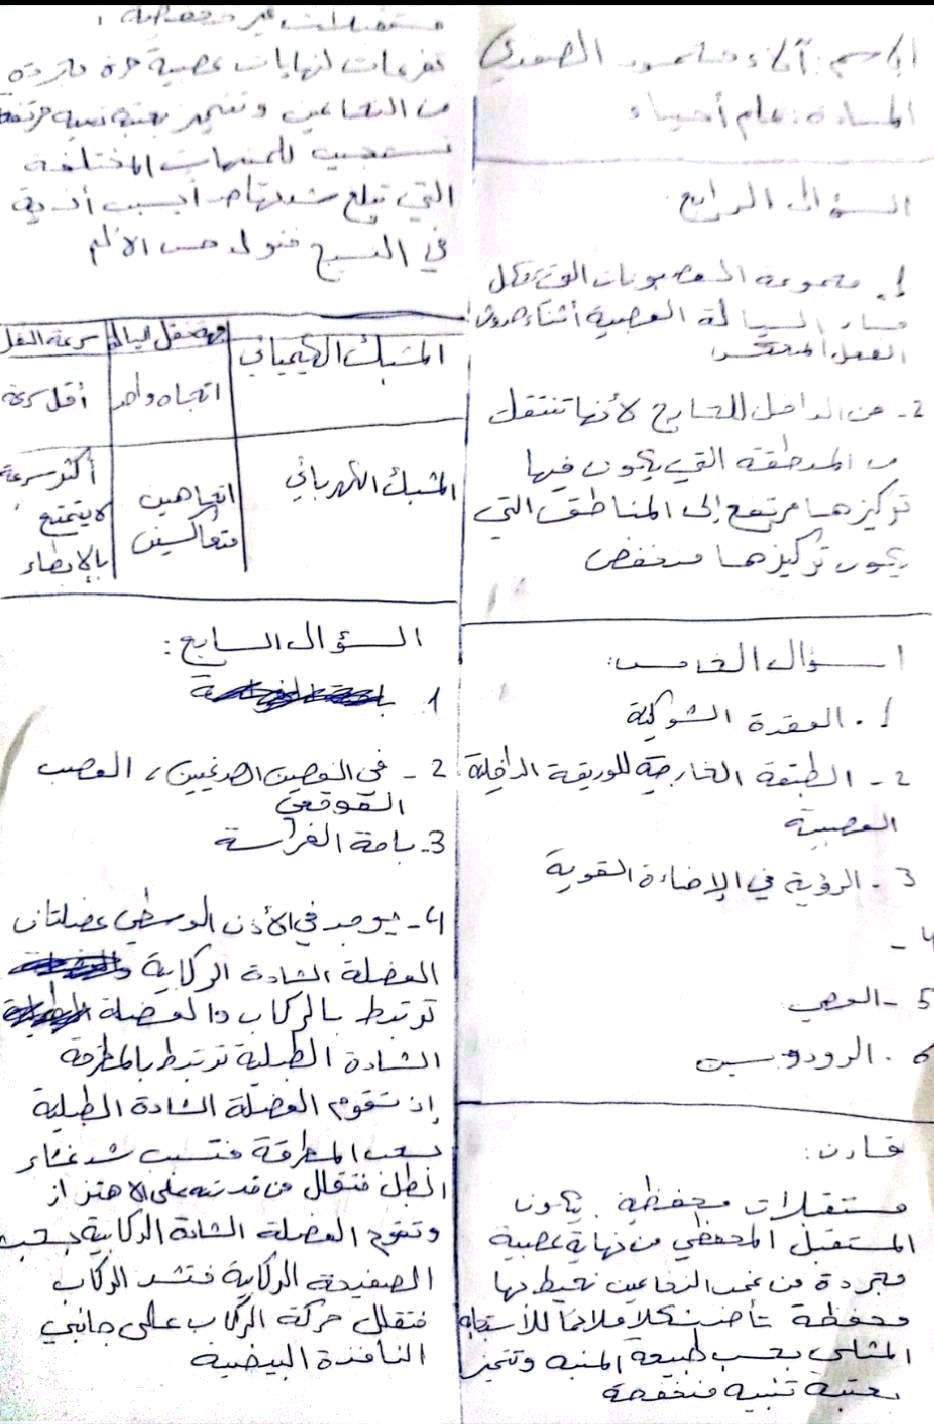 الاسم: آلاء محمود الصعيدي
المادة: علم أحياء
السؤال الرابع
1. مجموعة العصبونات التي تشكل
مسار السيالة العصبية أثناء حدوث
الفعل المنعكس
2- من الداخل للخارج لأنها تنتقل
من المنطقة التي يكون فيها
تركيزها مرتفع إلى المناطق التي
يكون تركيزها منخفض
السؤال الخامس:
1. العقدة الشوكية
2- الطبقة الخارجية للوريقة الداخلية
العصبية
3- الرؤية في الإضاءة القوية
4-
5- العصي
6. الرودوبسين
قارن:
مستقبلات محفظية يكون
المستقبل المحفظي من نهاية عصبية
مجردة من غمد النخاعين تحيط بها
محفظة تأخذ شكلا ملائما للأستجابة
المثلى بحسب طبيعة المنبه وتتميز
بعتبة تنبيه منخفضة
مستقبلات غير محفظية:
تفرعات لنهايات عصبية حرة مجردة
من النخاعين وتتميز بعتبة تنبيه مرتفعة
تستجيب للمنبهات المختلفة
التي تبلغ شدتها حد أيسبب أذية
في النسيج فتولد حس الألم
جهة نقل السيالة سرعة النقل
المشبك الكيميائي اتجاه واحد أقل سرعة
المشبك الكهربائي اتجاهين متعاكسين أكثر سرعة لا يتمتع بالإبطاء
السؤال السابع:
1.
2- في الفصين الصدغيين، العصب
القوقعي
3. باحة الفراسة
4- يوجد في الأذن الوسطى عضلتان
العضلة الشادة الركابية
ترتبط بالركاب والعضلة
الشادة الطبلية ترتبط بالمطرقة
إذ تقوم العضلة الشادة الطبلية
بسحب المطرقة فتسبب شد غشاء
الطبل فتقلل من قدرته على الاهتزاز
وتقوم العضلة الشادة الركابية بسحب
الصفيحة الركابية فتشد الركاب
فتقلل حركة الركاب على جانبي
النافذة البيضية